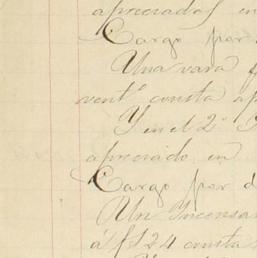 apreciados en
Cargo por
Una vara
vent.º consta
Y en el 2º
apreciado en
Cargo por d
Un Incensa
á f124 consta